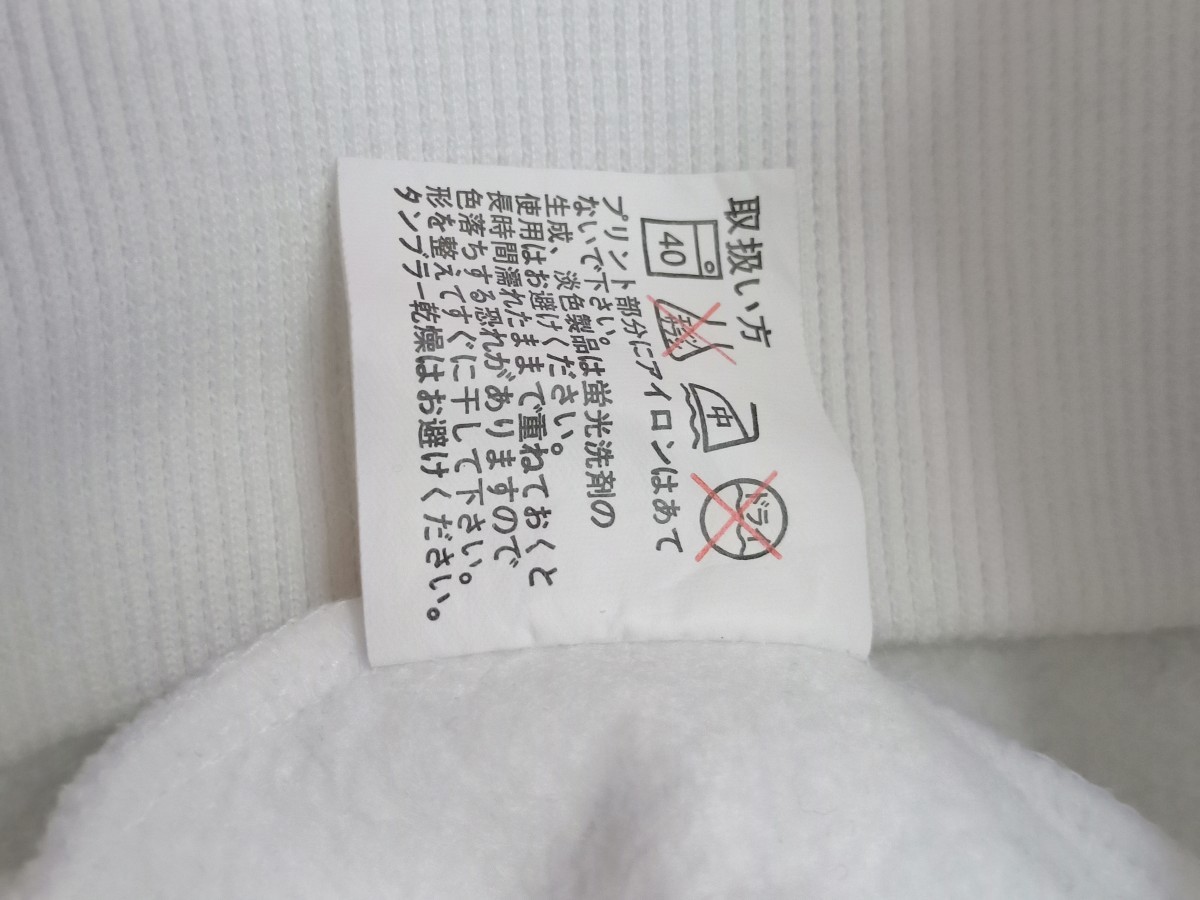 取扱い方
40
中
ドライ
プリント部分にアイロンはあて
ないで下さい。
生成、淡色製品は蛍光洗剤の
使用はお避けください。
長時間濡れたままで重ねておくと
色落ちする恐れがありますので
形を整えてすぐに干して下さい。
タンブラー乾燥はお避けください。